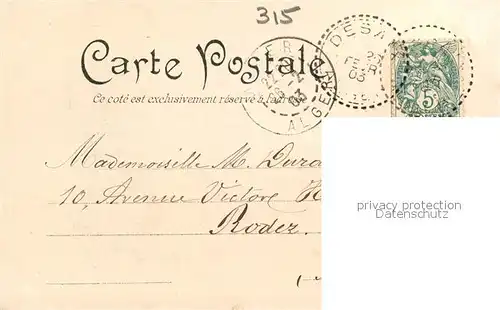 315
DESA
Carte Postale
Ce coté est exclusivement réservé à
ALGER
03
5
Mademoiselle M.
10, Avenue Victor
Rodez
privacy protection
Datenschutz